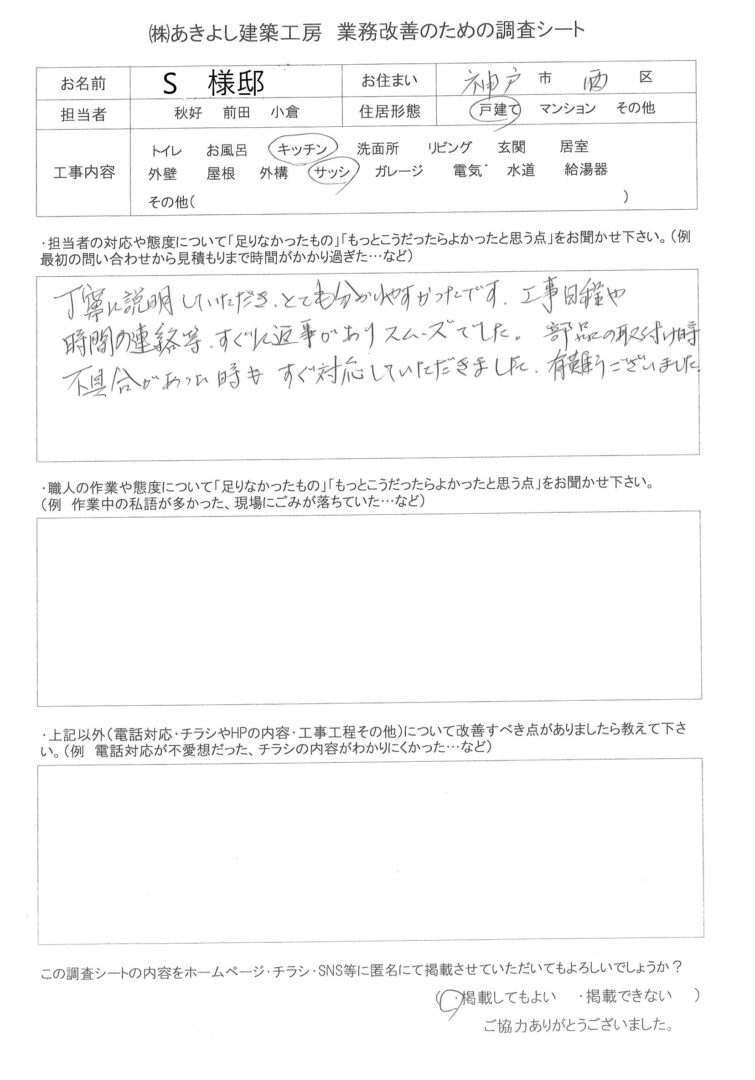 ㈱あきよし建築工房　業務改善のための調査シート
お名前　S　様邸　お住まい　神戸　市　西　区
担当者　秋好　前田　小倉　住居形態　戸建て　マンション　その他
トイレ　お風呂　キッチン　洗面所　リビング　玄関　居室
工事内容　外壁　屋根　外構　サッシ　ガレージ　電気　水道　給湯器
その他(　　　)
・担当者の対応や態度について「足りなかったもの」「もっとこうだったらよかったと思う点」をお聞かせ下さい。(例
最初の問い合わせから見積もりまで時間がかかり過ぎた…など)
丁寧に説明していただき、とても分かりやすかったです。工事日程や
時間の連絡等、すぐに返事がありスムーズでした。部品の取り付け時
不具合があった時も すぐ対応していただきました。有難うございました
・職人の作業や態度について「足りなかったもの」「もっとこうだったらよかったと思う点」をお聞かせ下さい。
(例　作業中の私語が多かった、現場にごみが落ちていた…など)
・上記以外(電話対応・チラシやHPの内容・工事工程その他)について改善すべき点がありましたら教えて下さ
い。(例　電話対応が不愛想だった、チラシの内容がわかりにくかった…など)
この調査シートの内容をホームページ・チラシ・SNS等に匿名にて掲載させていただいてもよろしいでしょうか？
(　・掲載してもよい　・掲載できない　)
ご協力ありがとうございました。